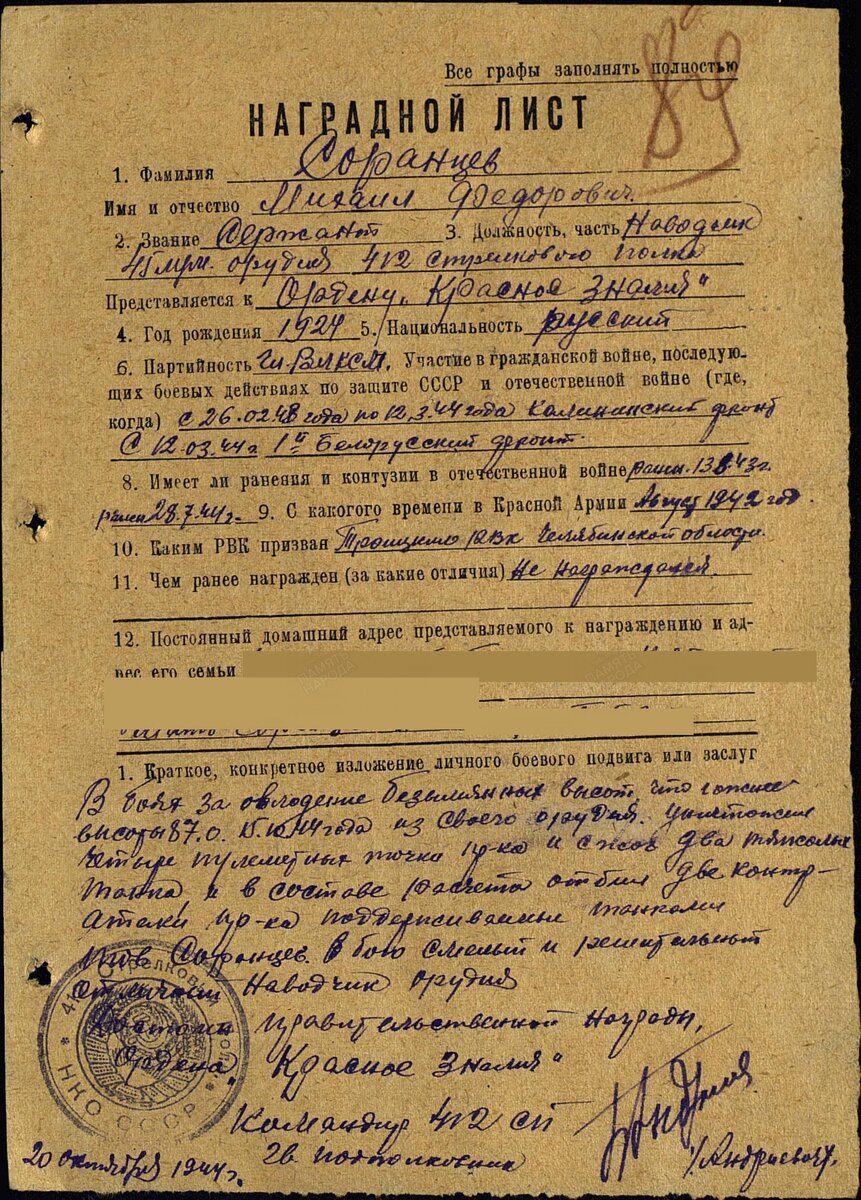 89
Все графы заполнять полностью
НАГРАДНОЙ ЛИСТ
1. Фамилия Соранцев
Имя и отчество Михаил Федорович.
2. Звание Сержант 3. Должность, часть Наводчик
45 мм. орудия 412 стрелкового полка
Представляется к Ордену „Красное Знамя"
4. Год рождения 1924 5. Национальность русский
6. Партийность чл. ВЛКСМ. Участие в гражданской войне, последую-
щих боевых действиях по защите СССР и отечественной войне (где,
когда) с 26.02.43 года по 12.3.44 года Калининский фронт
С 12.03.44 г. 1й Белорусский фронт.
8. Имеет ли ранения и контузии в отечественной войне ранен. 43 г.
ранен 28.7.44 г. 9. С какого времени в Красной Армии Август 1942 год.
10. Каким РВК призван Троицким РВК Челябинской области.
11. Чем ранее награжден (за какие отличия) Не награждался.
12. Постоянный домашний адрес представляемого к награждению и ад-
рес его семьи
1. Краткое, конкретное изложение личного боевого подвига или заслуг
В боях за овладение безымянных высот, что южнее
высоты 87.0. 15.10.44 года из своего орудия. уничтожил
четыре пулеметных точки пр-ка и сжог два тяжолых
танка и в составе расчета отбил две контр-
атаки пр-ка поддерживаемые танками
тов Соранцев. в бою смелый и решительный
отличный Наводчик орудия
Достоин правительственной награды,
Ордена „Красное Знамя"
Командир 412 сп
гв подполковник /Андриевич/.
20 октября 1944 г.
НКО СССР